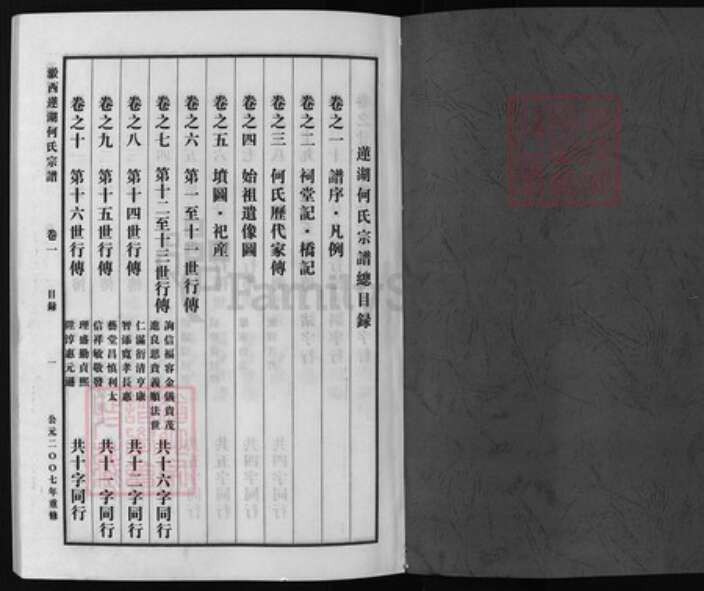 蓮湖何氏宗譜總目錄
卷之一 譜序·凡例
卷之二 祠堂記·橋記
卷之三 何氏歷代家傳
卷之四 始祖遺像圖
卷之五 墳圖·祀產
卷之六 第一至十一世行傳
卷之七 第十二至十三世行傳 詢信福容金儀貴茂 進良恩貴義順法世 共十六字同行
卷之八 第十四世行傳 仁滿衍清亨康 智添寬孝長惠 共十二字同行
卷之九 第十五世行傳 藝堂昌慎利太 信祥敏敬發 共十一字同行
卷之十 第十六世行傳 理盛勤貞熙 陞淳惠元通 共十字同行
西蓮湖何氏宗譜 卷一 目錄 一 公元二〇〇七年重修
FamilyS